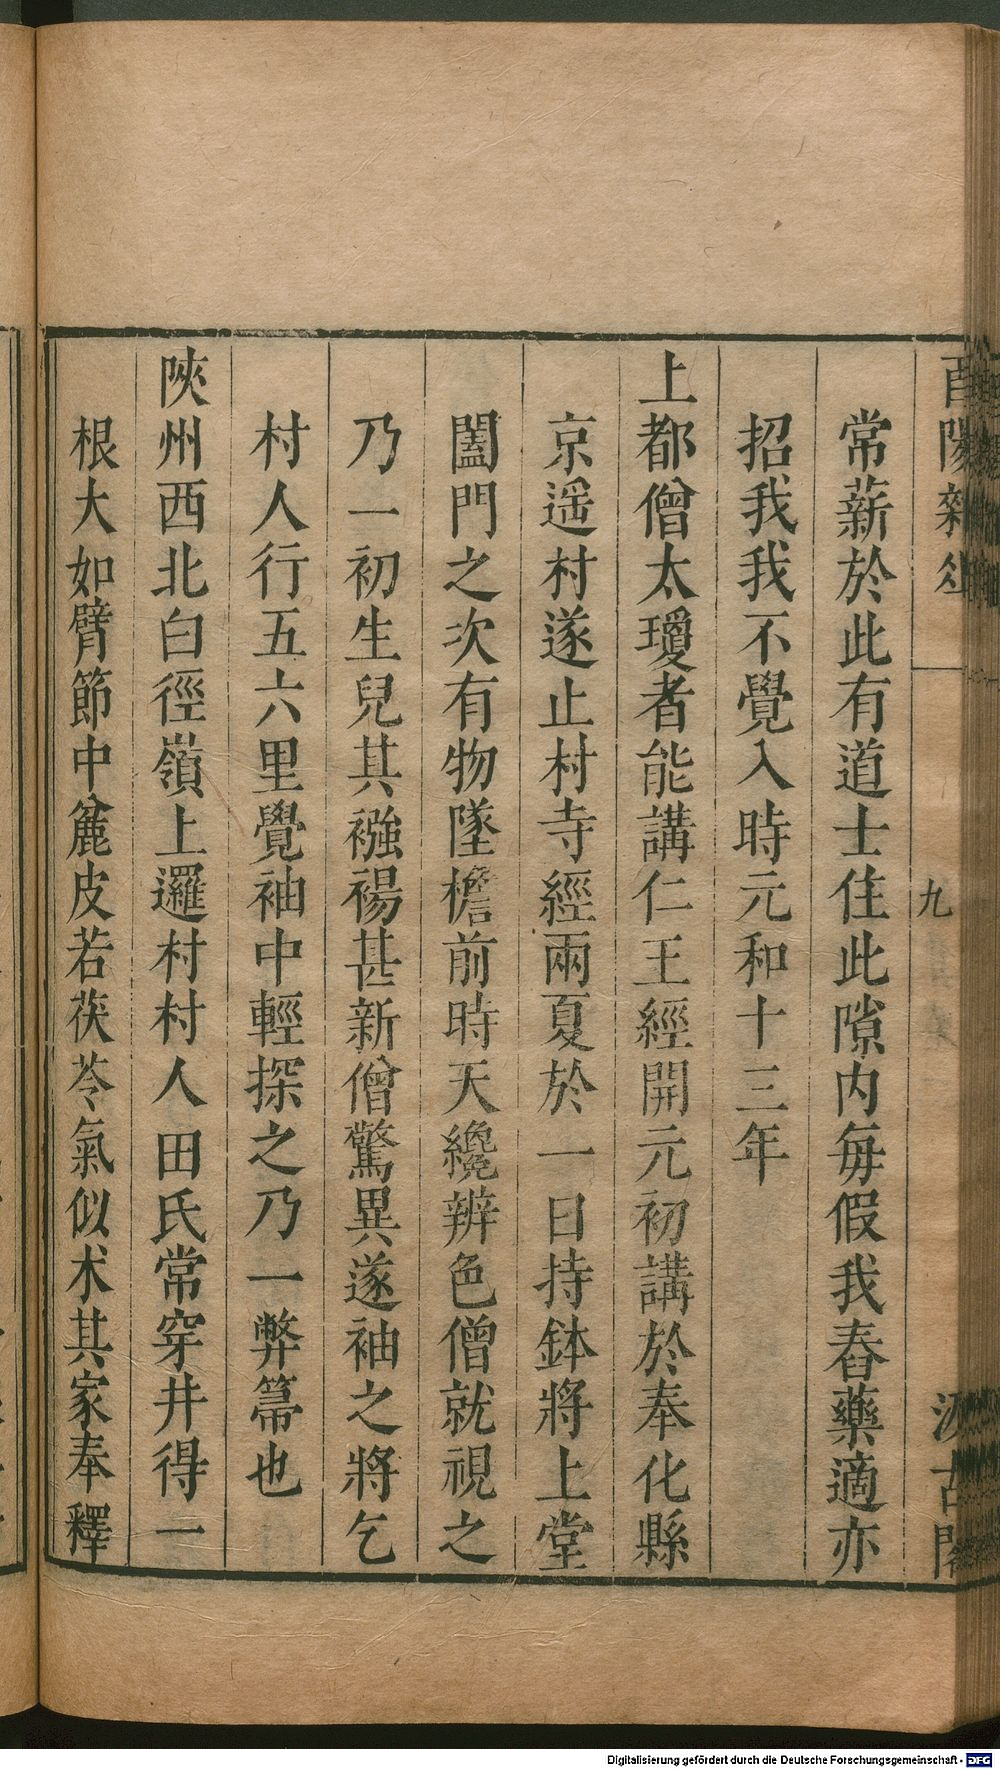 酉陽雜俎
九
汲古閣
常薪於此有道士住此隙内每假我舂藥適亦
招我我不覺入時元和十三年
上都僧太瓊者能講仁王經開元初講於奉化縣
京遥村遂止村寺經兩夏於一日持鉢將上堂
闔門之次有物墜檐前時天纔辨色僧就視之
乃一初生兒其襁褓甚新僧驚異遂袖之將乞
村人行五六里覺袖中輕探之乃一弊箒也
陜州西北白徑嶺上邏村村人田氏常穿井得一
根大如臂節中麄皮若茯苓氣似术其家奉釋
Digitalisierung gefördert durch die Deutsche Forschungsgemeinschaft - DFG